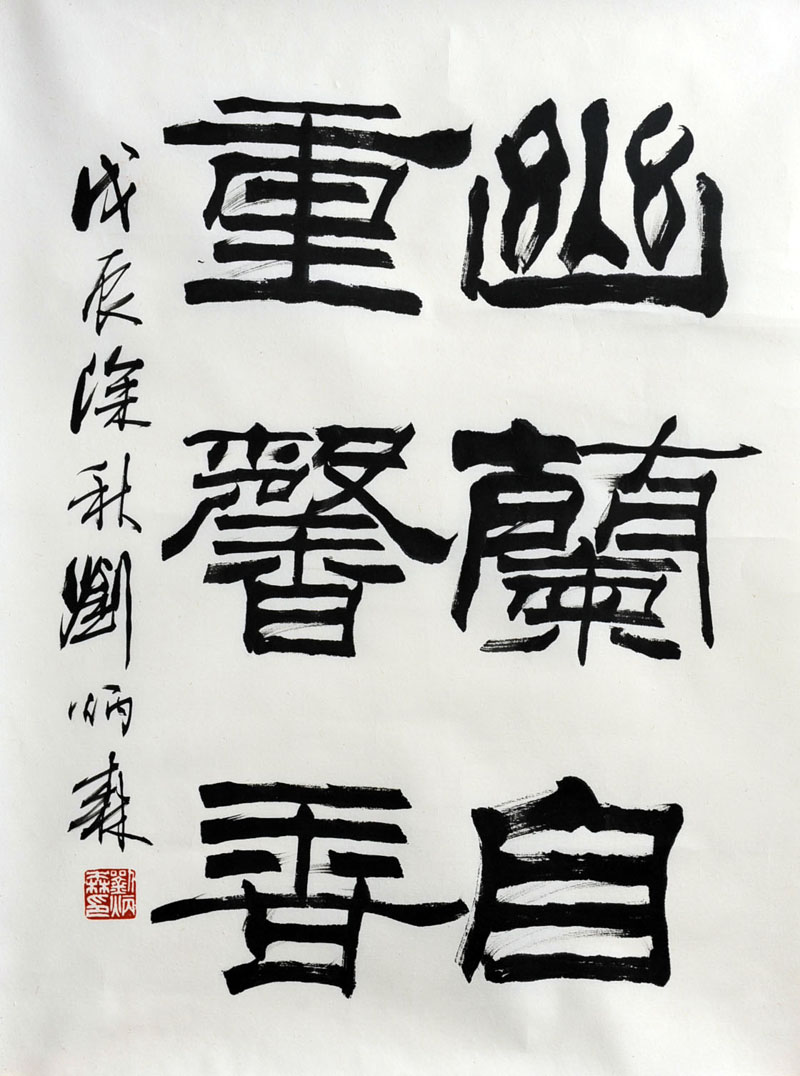 幽蘭自
重馨香
戊辰深秋劉炳森
劉炳森印